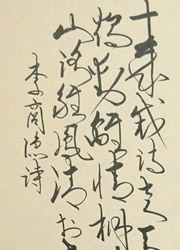 十歲裁詩走
燭動離情桐
山路雛鳳清於
李商隱詩